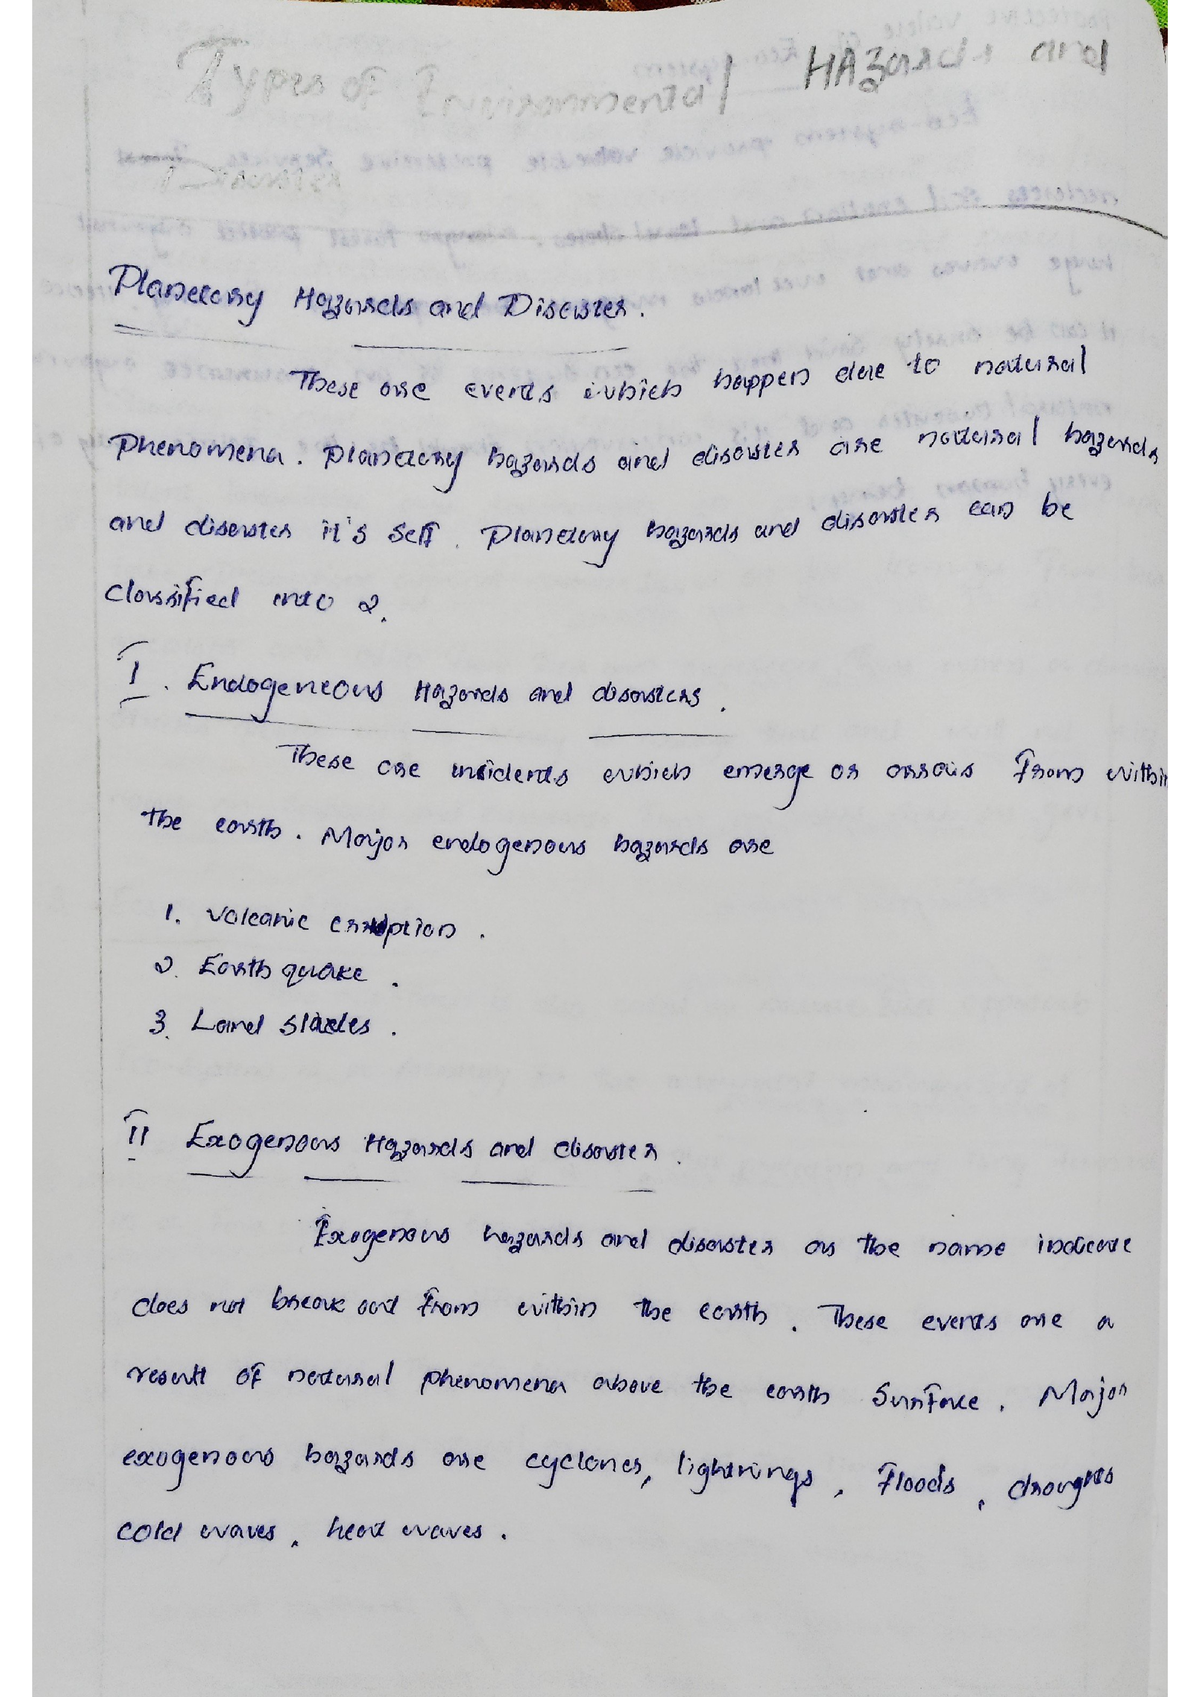 Types of Environmental HAZards and
Disaster
Planetory Hazards and Disaster.
These are events which happen due to natural
Phenomena. Planetory hazards and disaster are natural hazards
and disaster it's self. Planetory hazards and disaster can be
classified into 2.
I. Endogeneous Hazards and disasters.
These are incidents which emerge or arrais from within
the earth. Major endogenous hazards are
1. Volcanic erruption.
2. Earth quake.
3. Land slides.
II Exogenous Hazards and disaster.
Exogenous hazards and disaster as the name indicate
does not break out from within the earth. These events are a
result of natural phenomena above the earth Surface. Major
exogenous hazards are cyclones, lightnings, floods, droughts
cold waves, heat waves.